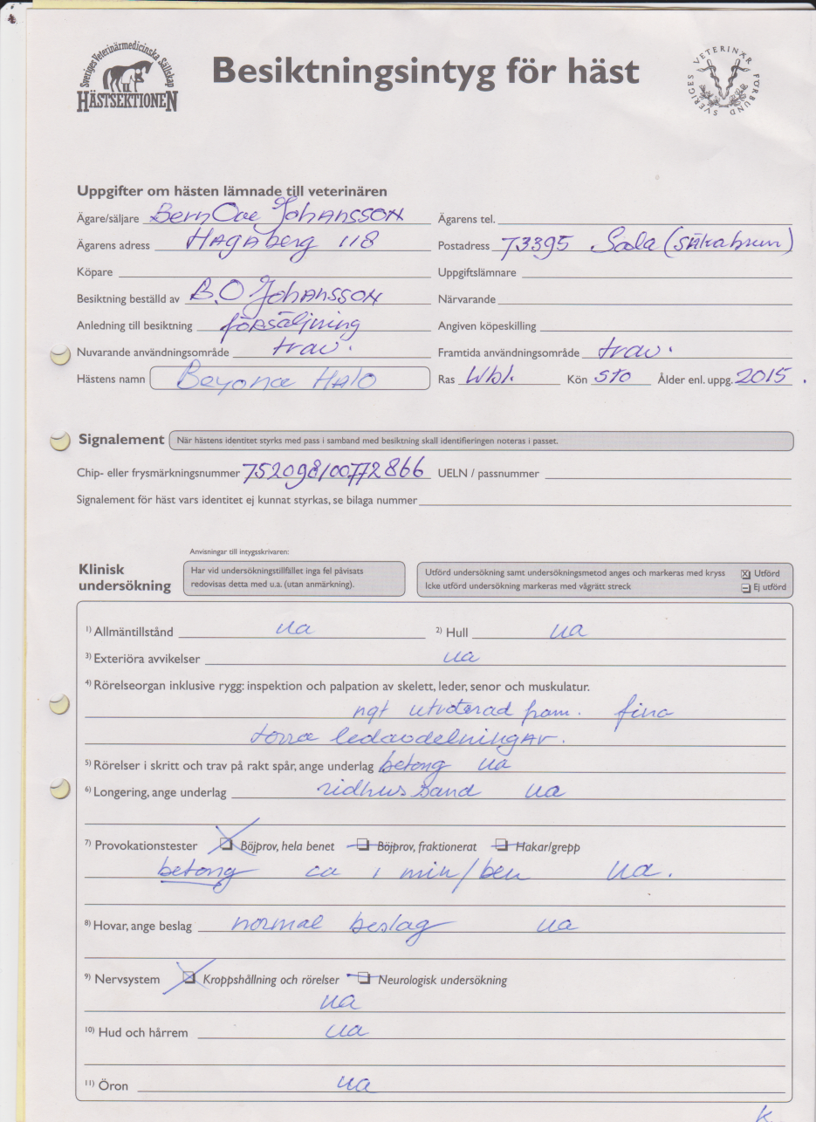 Sveriges Veterinärmedicinska Sällskap
HÄSTSEKTIONEN
Besiktningsintyg för häst
SVERIGES VETERINÄR FÖRBUND
Uppgifter om hästen lämnade till veterinären
Ägare/säljare BernOve Johansson Ägarens tel.
Ägarens adress Hagaberg 118 Postadress 73395 Sala (Sätrabrunn)
Köpare Uppgiftslämnare
Besiktning beställd av B.O Johansson Närvarande
Anledning till besiktning försäljning Angiven köpeskilling
Nuvarande användningsområde trav. Framtida användningsområde trav.
Hästens namn Beyonce Halo Ras Wbl. Kön sto Ålder enl. uppg. 2015.
Signalement När hästens identitet styrks med pass i samband med besiktning skall identifieringen noteras i passet.
Chip- eller frysmärkningsnummer 752098100772866 UELN / passnummer
Signalement för häst vars identitet ej kunnat styrkas, se bilaga nummer
Anvisningar till intygsskrivaren:
Klinisk undersökning
Har vid undersökningstillfället inga fel påvisats
redovisas detta med u.a. (utan anmärkning).
Utförd undersökning samt undersökningsmetod anges och markeras med kryss Utförd
Icke utförd undersökning markeras med vågrätt streck Ej utförd
1) Allmäntillstånd ua 2) Hull ua
3) Exteriöra avvikelser ua
4) Rörelseorgan inklusive rygg: inspektion och palpation av skelett, leder, senor och muskulatur.
ngt utroterad fram. fina
torra ledavdelningar.
5) Rörelser i skritt och trav på rakt spår, ange underlag betong ua
6) Longering, ange underlag ridhus sand ua
7) Provokationstester Böjprov, hela benet Böjprov, fraktionerat Hakar/grepp
betong ca 1 min/ben ua.
8) Hovar, ange beslag normal beslag ua
9) Nervsystem Kroppshållning och rörelser Neurologisk undersökning
ua
10) Hud och hårrem ua
11) Öron ua
K